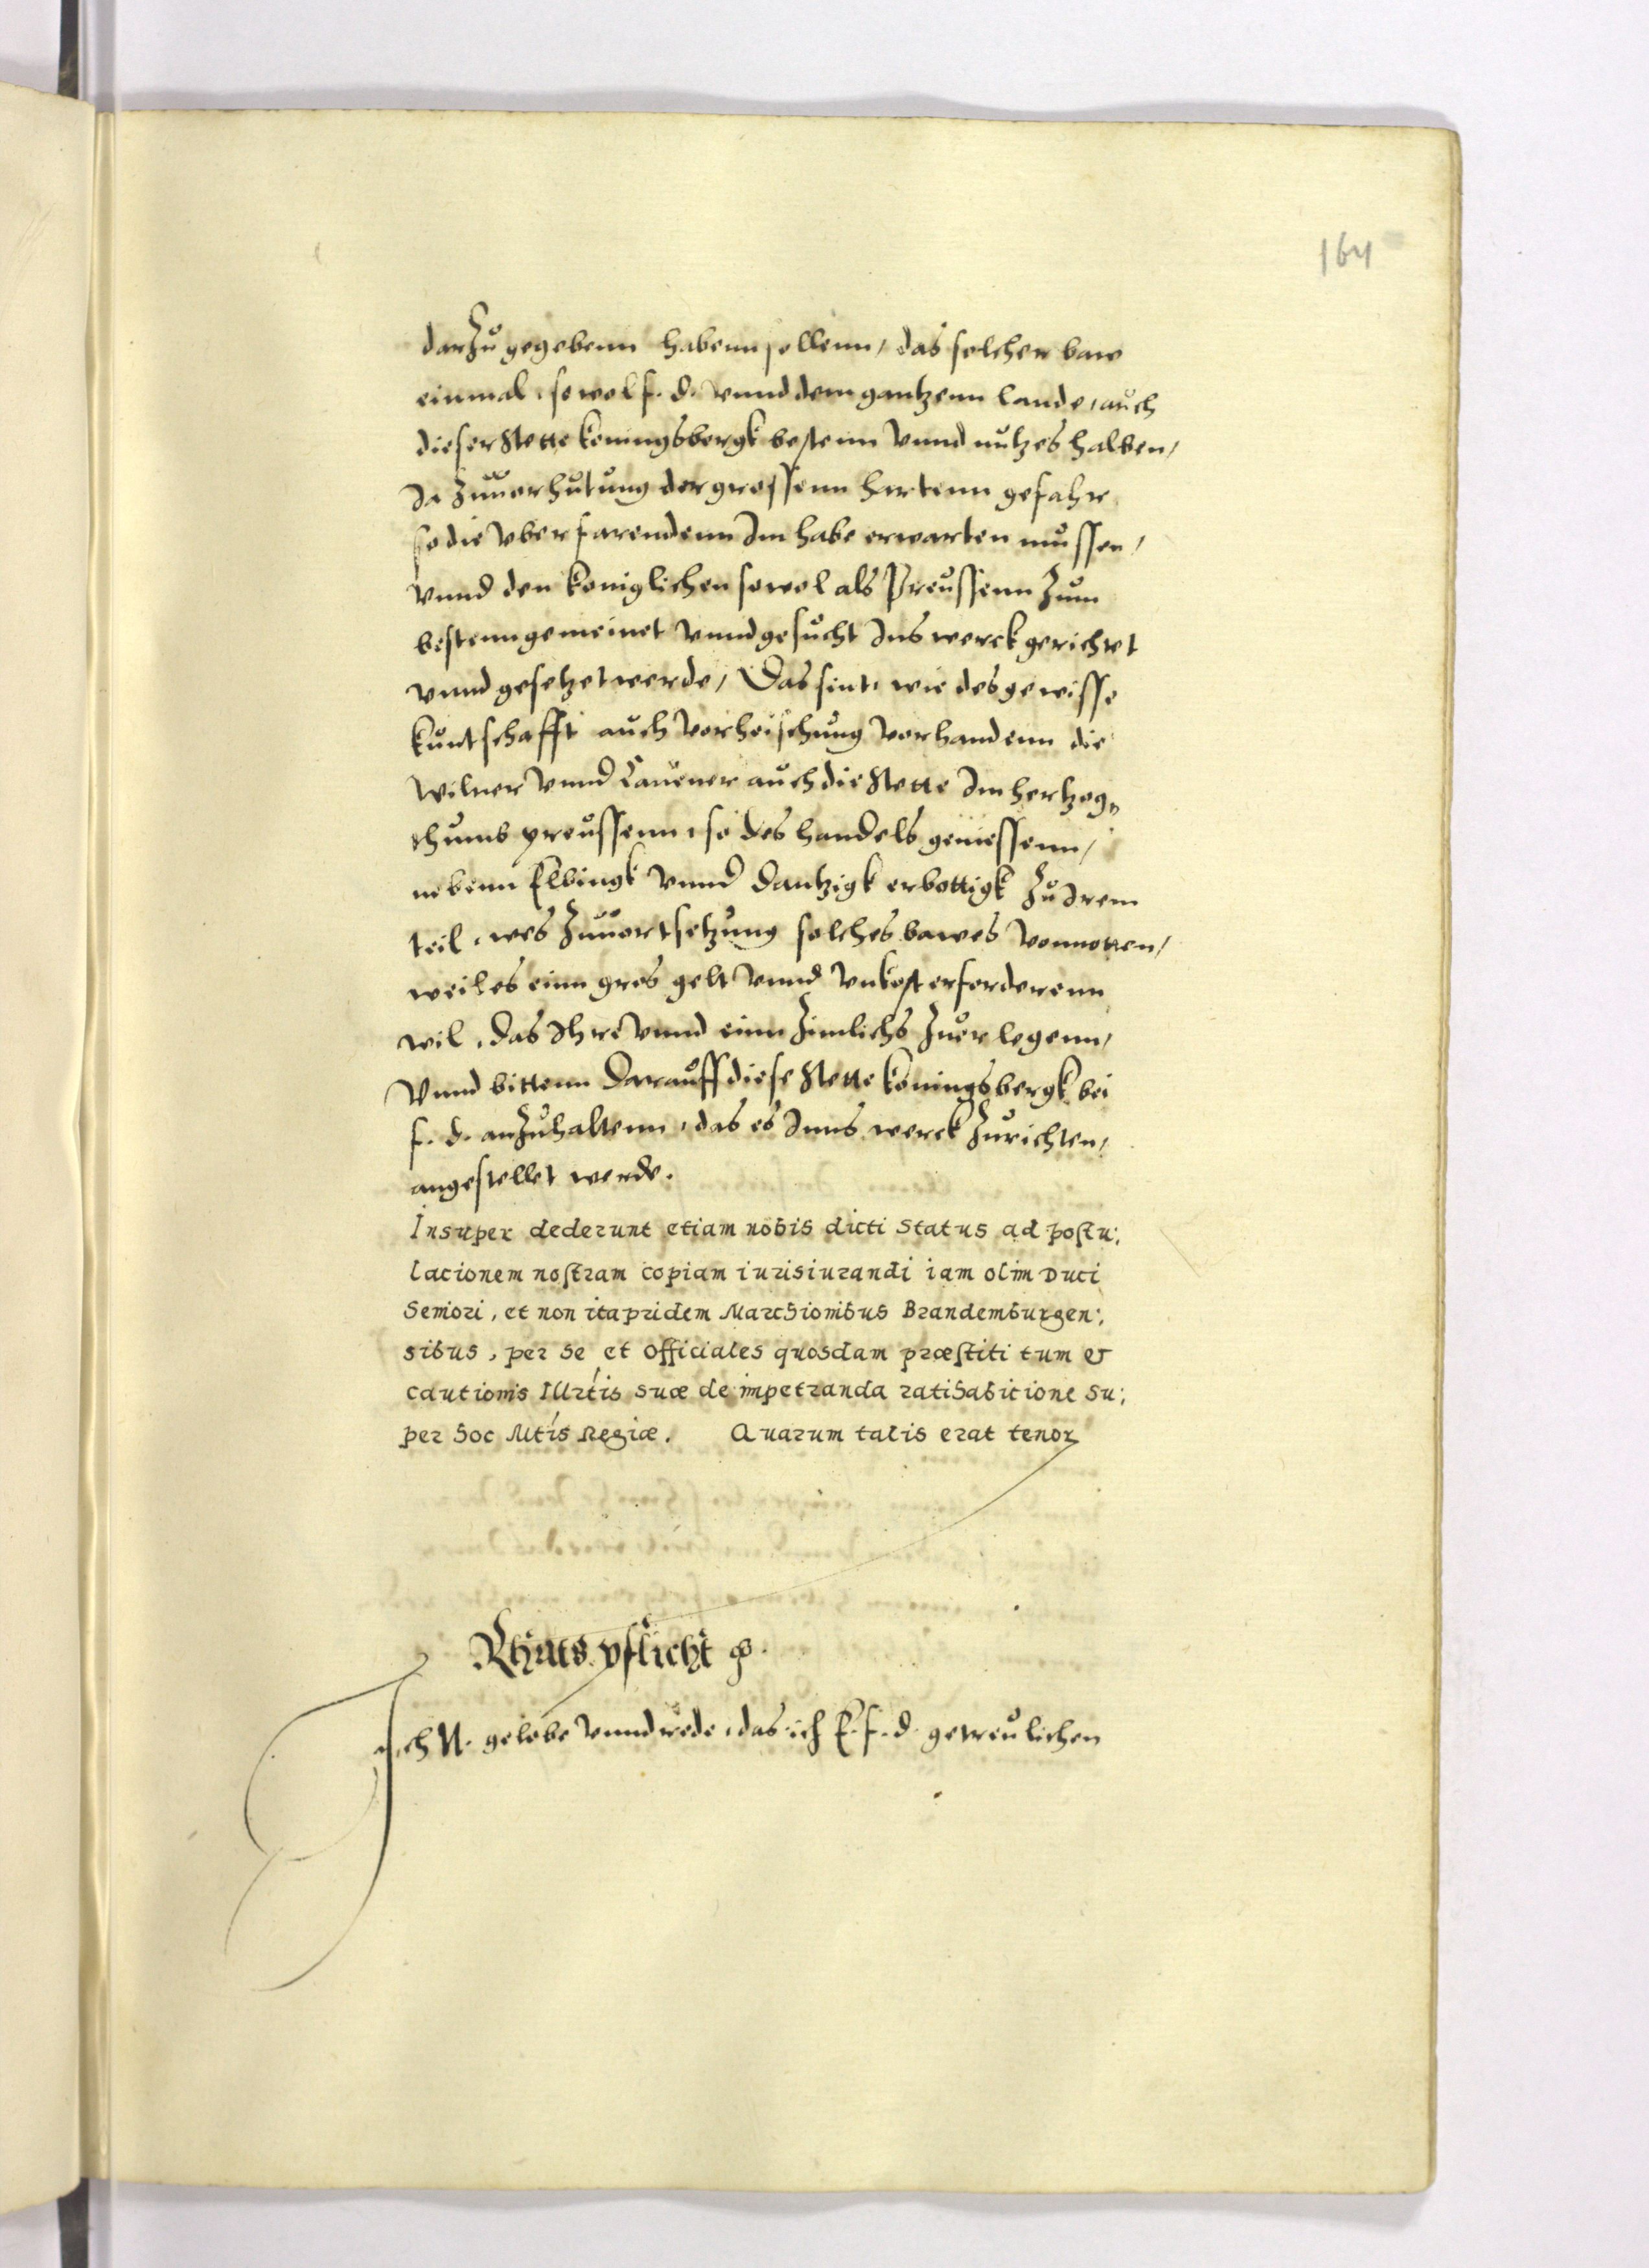 164
darzu gegebenn habenn sollenn, das solcher baw
einmal, so wol f. d. vnnd dem gantzenn lande, auch
dieser stette koningsbergk bestenn vnnd nutzes halben,
Ja zuuorhutung der grossenn hartenn gefahr
so die vberfarendenn Im habe erwarten mussen,
vnnd den koniglichen sowol als Preussenn zum
bestenn gemeinet vnnd gesucht Ins werck gerichtet
vnnd gesetzet werde, Das sint, wie des gewisse
kuntschafft auch vorheischung vorhandenn die
wilner vnnd Cauener auch die stette Im hertzog,
thumb preussenn, so des handels geniessenn,
nebenn Elbingk vnnd Dantzigk erbottigk zu Irem
teil, wes zuuortsetzung solches bawes vonnoten,
weil es einn gros gelt vnnd vnkost erforderenn
wil, das Ihre vnnd einn zimlichs zuerlegenn,
Vnnd bittenn Darauff diese stette koningsbergk bei
f. d. anzuhaltenn, das es Inns werck zurichten,
angestellet werde.
Insuper dederunt etiam nobis dicti Status ad postu:
lacionem nostram copiam iurisiurandi iam olim Duci
Seniori, et non ita pridem Marchionibus Brandemburgen:
sibus, per se et Officiales quosdam præstiti tum &
cautionis Illrtis suæ de impetranda ratihabicione su:
per hoc Mtis Regiæ. Quarum talis erat tenor
Rhats pflicht
Ich N. gelobe vnnd rede, das ich E. f. d. getreulichen